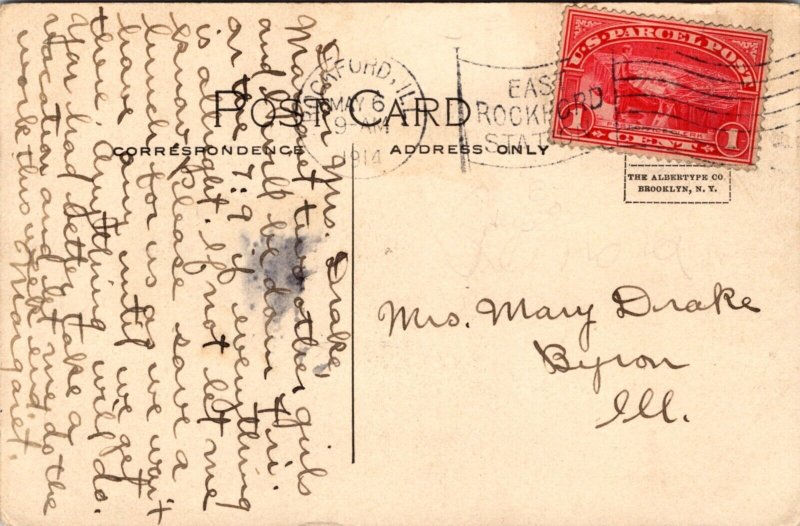 POST CARD
CORRESPONDENCE
ADDRESS ONLY
THE ALBERTYPE CO.
BROOKLYN, N. Y.
U.S. PARCEL POST
1 CENT 1
ROCKFORD, ILL
MAY 6
9-AM
1914
EAST
ROCKFORD
STATION
Mrs. Mary Drake
Byron
Ill.
Dear Mrs. Drake,
Margaret two other girls
and I will be down Fri.
on the 7:9 if everything
is alright. If not let me
know. Please save a
lunch for us as we won't
have any until we get
there. Anything will do.
You had better take a
vacation and let me do the
work this week end.
Margaret.